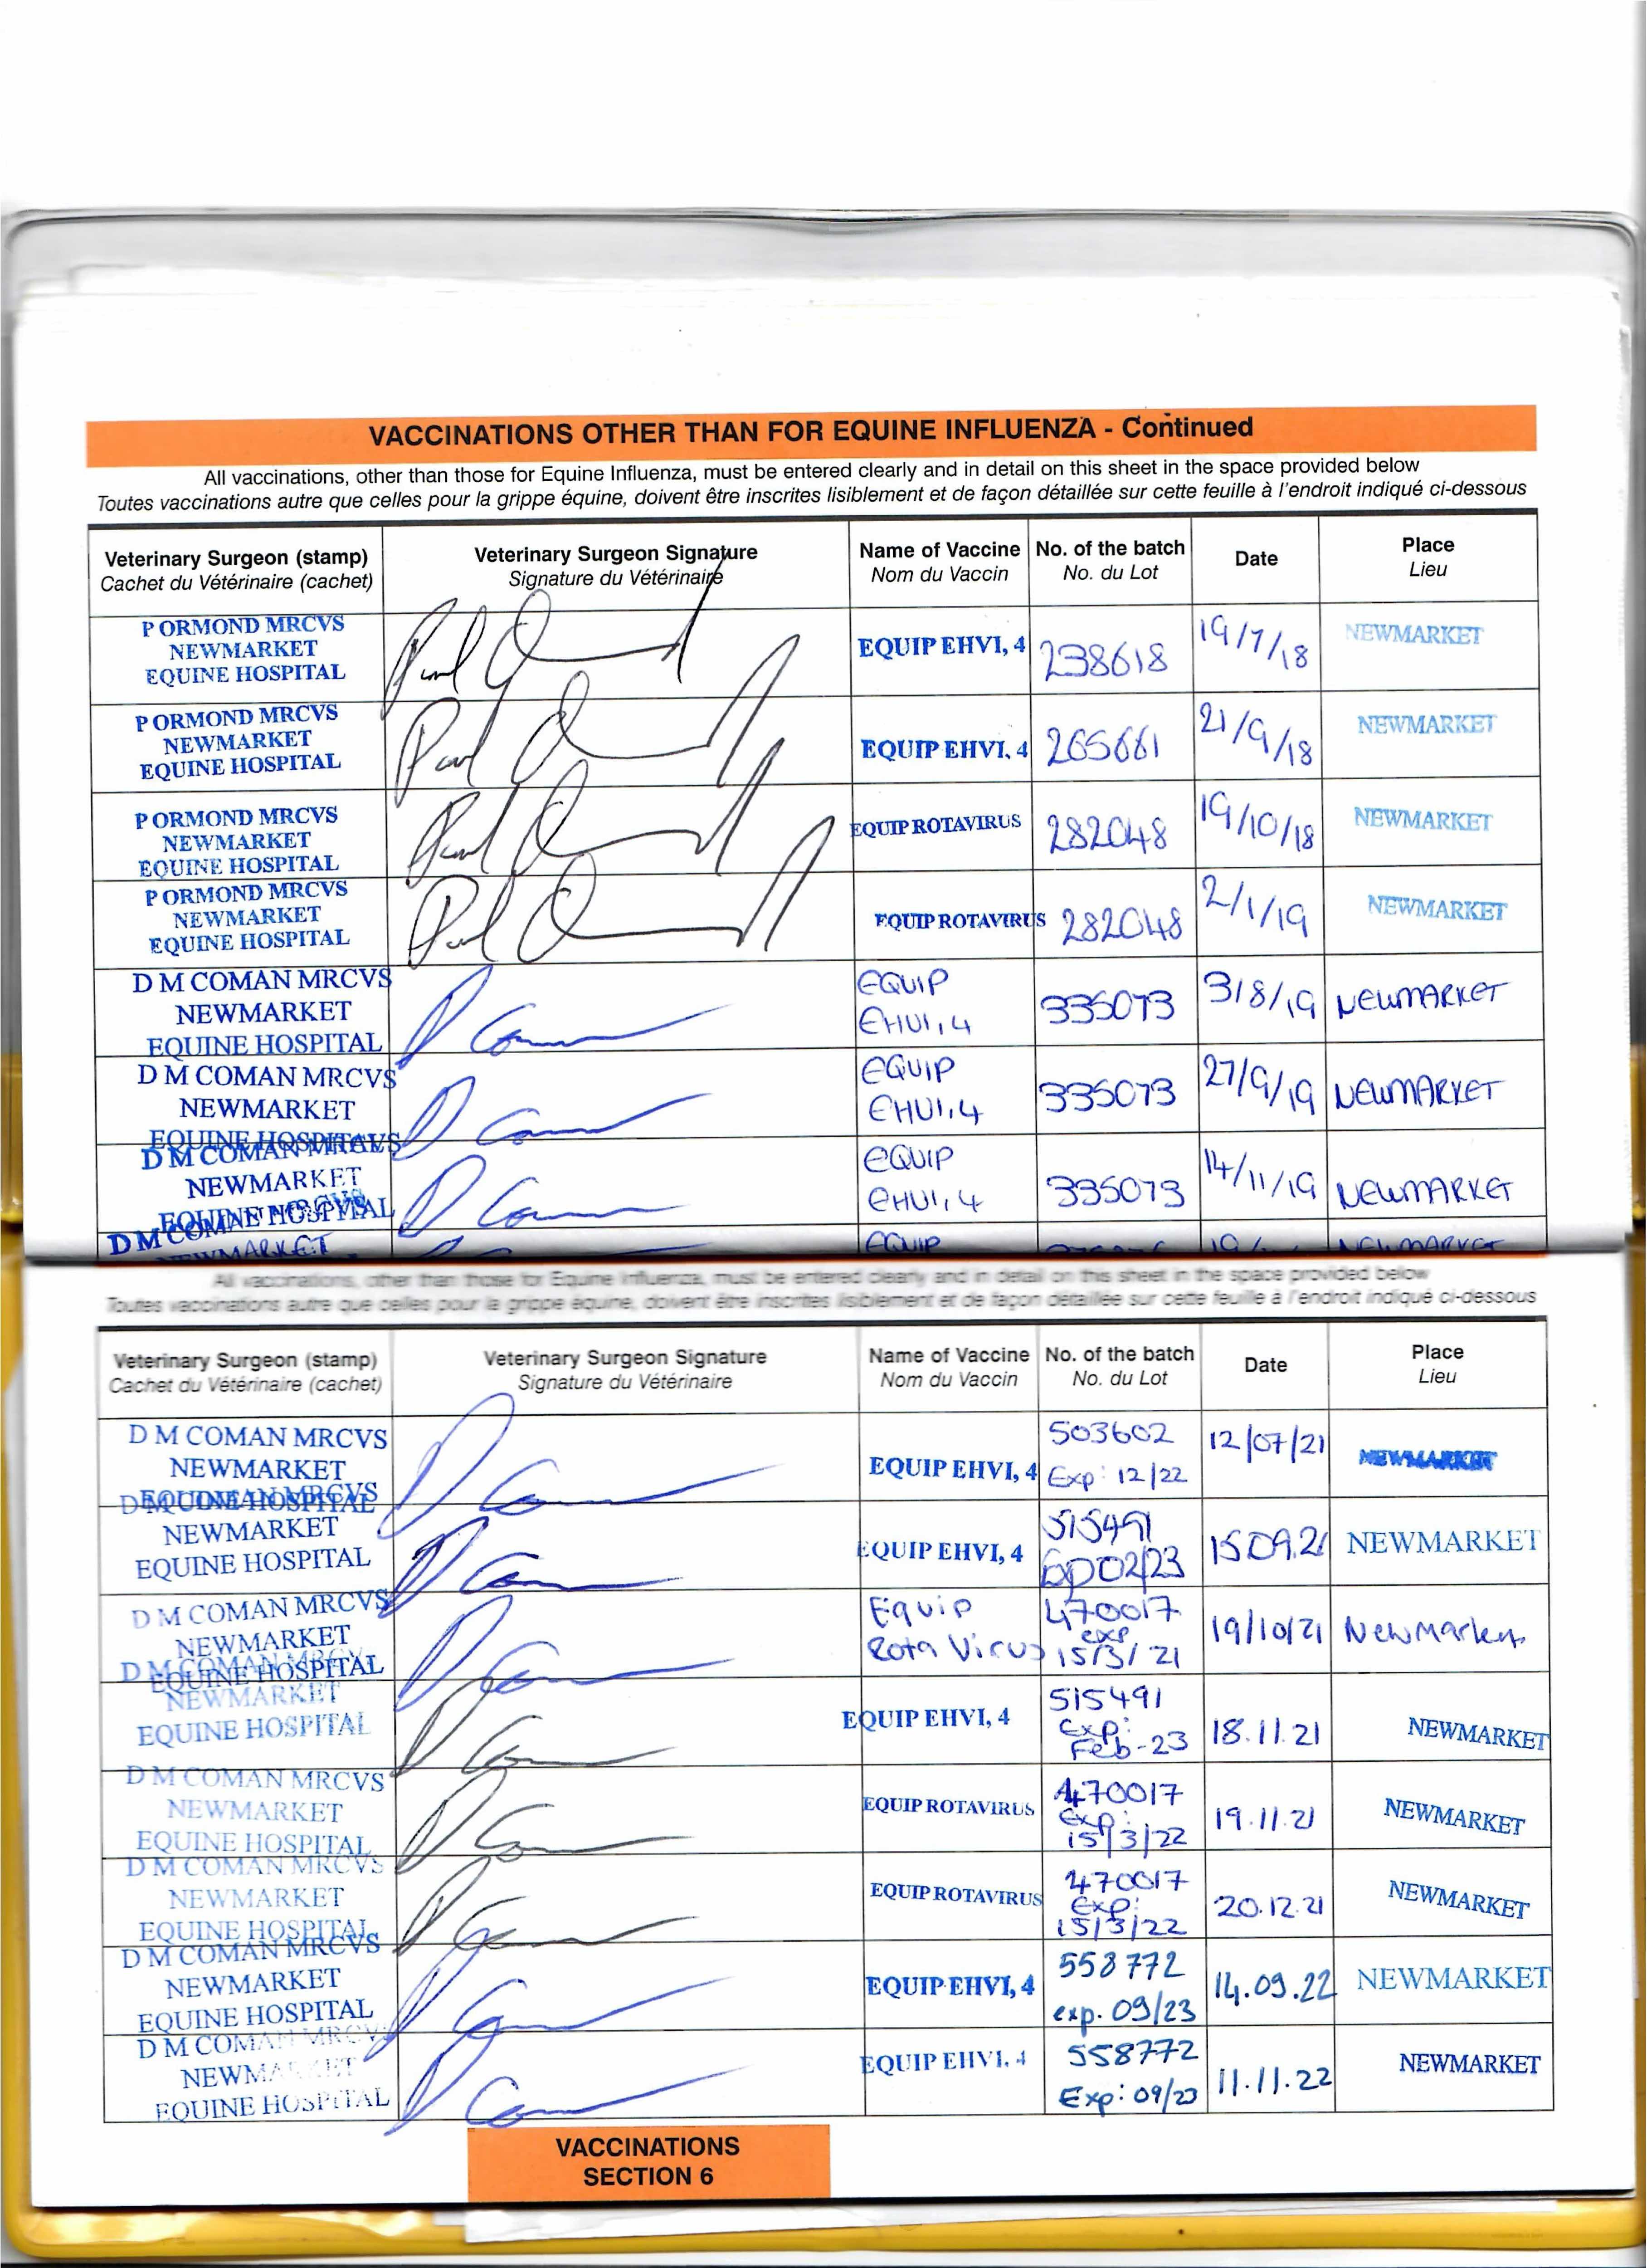 VACCINATIONS OTHER THAN FOR EQUINE INFLUENZA - Continued
All vaccinations, other than those for Equine Influenza, must be entered clearly and in detail on this sheet in the space provided below
Toutes vaccinations autre que celles pour la grippe équine, doivent être inscrites lisiblement et de façon détaillée sur cette feuille à l'endroit indiqué ci-dessous
Veterinary Surgeon (stamp) Veterinary Surgeon Signature Name of Vaccine No. of the batch Date Place
Cachet du Vétérinaire (cachet) Signature du Vétérinaire Nom du Vaccin No. du Lot Lieu
P ORMOND MRCVS
NEWMARKET
EQUINE HOSPITAL
EQUIP EHV1, 4 238618 19/7/18 NEWMARKET
P ORMOND MRCVS
NEWMARKET
EQUINE HOSPITAL
EQUIP EHV1, 4 265661 21/9/18 NEWMARKET
P ORMOND MRCVS
NEWMARKET
EQUINE HOSPITAL
EQUIP ROTAVIRUS 282048 19/10/18 NEWMARKET
P ORMOND MRCVS
NEWMARKET
EQUINE HOSPITAL
EQUIP ROTAVIRUS 282048 2/1/19 NEWMARKET
D M COMAN MRCVS
NEWMARKET
EQUINE HOSPITAL
EQUIP
EHV1,4 335073 3/8/19 NEWMARKET
D M COMAN MRCVS
NEWMARKET
EQUINE HOSPITAL
EQUIP
EHV1,4 335073 27/9/19 NEWMARKET
D M COMAN MRCVS
NEWMARKET
EQUINE HOSPITAL
EQUIP
EHV1,4 335073 14/11/19 NEWMARKET
D M COMAN MRCVS
NEWMARKET
EQUIP NEWMARKET
All vaccinations, other than those for Equine Influenza, must be entered clearly and in detail on this sheet in the space provided below
Toutes vaccinations autre que celles pour la grippe équine, doivent être inscrites lisiblement et de façon détaillée sur cette feuille à l'endroit indiqué ci-dessous
Veterinary Surgeon (stamp) Veterinary Surgeon Signature Name of Vaccine No. of the batch Date Place
Cachet du Vétérinaire (cachet) Signature du Vétérinaire Nom du Vaccin No. du Lot Lieu
D M COMAN MRCVS
NEWMARKET
EQUINE HOSPITAL
EQUIP EHV1, 4 503602 12/07/21 NEWMARKET
Exp: 12/22
D M COMAN MRCVS
NEWMARKET
EQUINE HOSPITAL
EQUIP EHV1, 4 515491 15.09.21 NEWMARKET
exp 02/23
D M COMAN MRCVS
NEWMARKET
EQUINE HOSPITAL
Equip
Rota Virus 470017 19/10/21 Newmarket
exp
15/3/21
D M COMAN MRCVS
NEWMARKET
EQUINE HOSPITAL
EQUIP EHV1, 4 515491 18.11.21 NEWMARKET
Exp:
Feb-23
D M COMAN MRCVS
NEWMARKET
EQUINE HOSPITAL
EQUIP ROTAVIRUS 470017 19.11.21 NEWMARKET
Exp:
15/3/22
D M COMAN MRCVS
NEWMARKET
EQUINE HOSPITAL
EQUIP ROTAVIRUS 470017 20.12.21 NEWMARKET
Exp:
15/3/22
D M COMAN MRCVS
NEWMARKET
EQUINE HOSPITAL
EQUIP EHV1, 4 558772 14.09.22 NEWMARKET
exp. 09/23
D M COMAN MRCVS
NEWMARKET
EQUINE HOSPITAL
EQUIP EHV1, 4 558772 11.11.22 NEWMARKET
Exp: 09/23
VACCINATIONS
SECTION 6